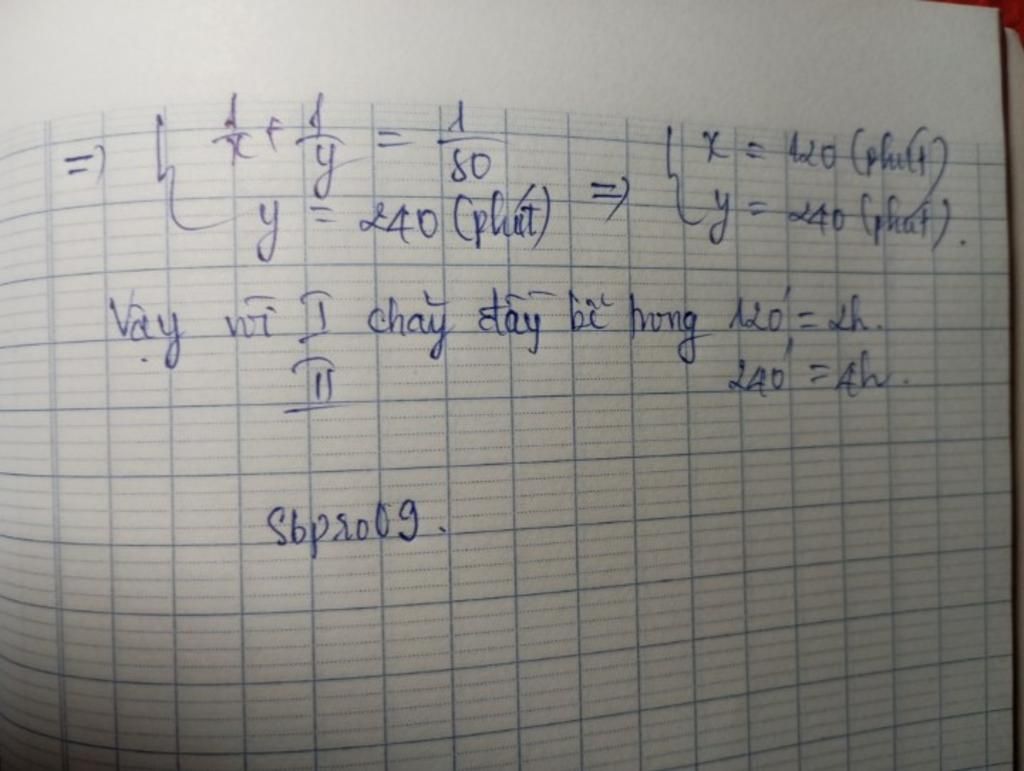 => { 1/x + 1/y = 1/80
y = 240 (phút) => { x = 120 (phút)
y = 240 (phút).
Vậy vòi I chảy đầy bể trong 120' = 2h.
II 240' = 4h.
Sbpro09.